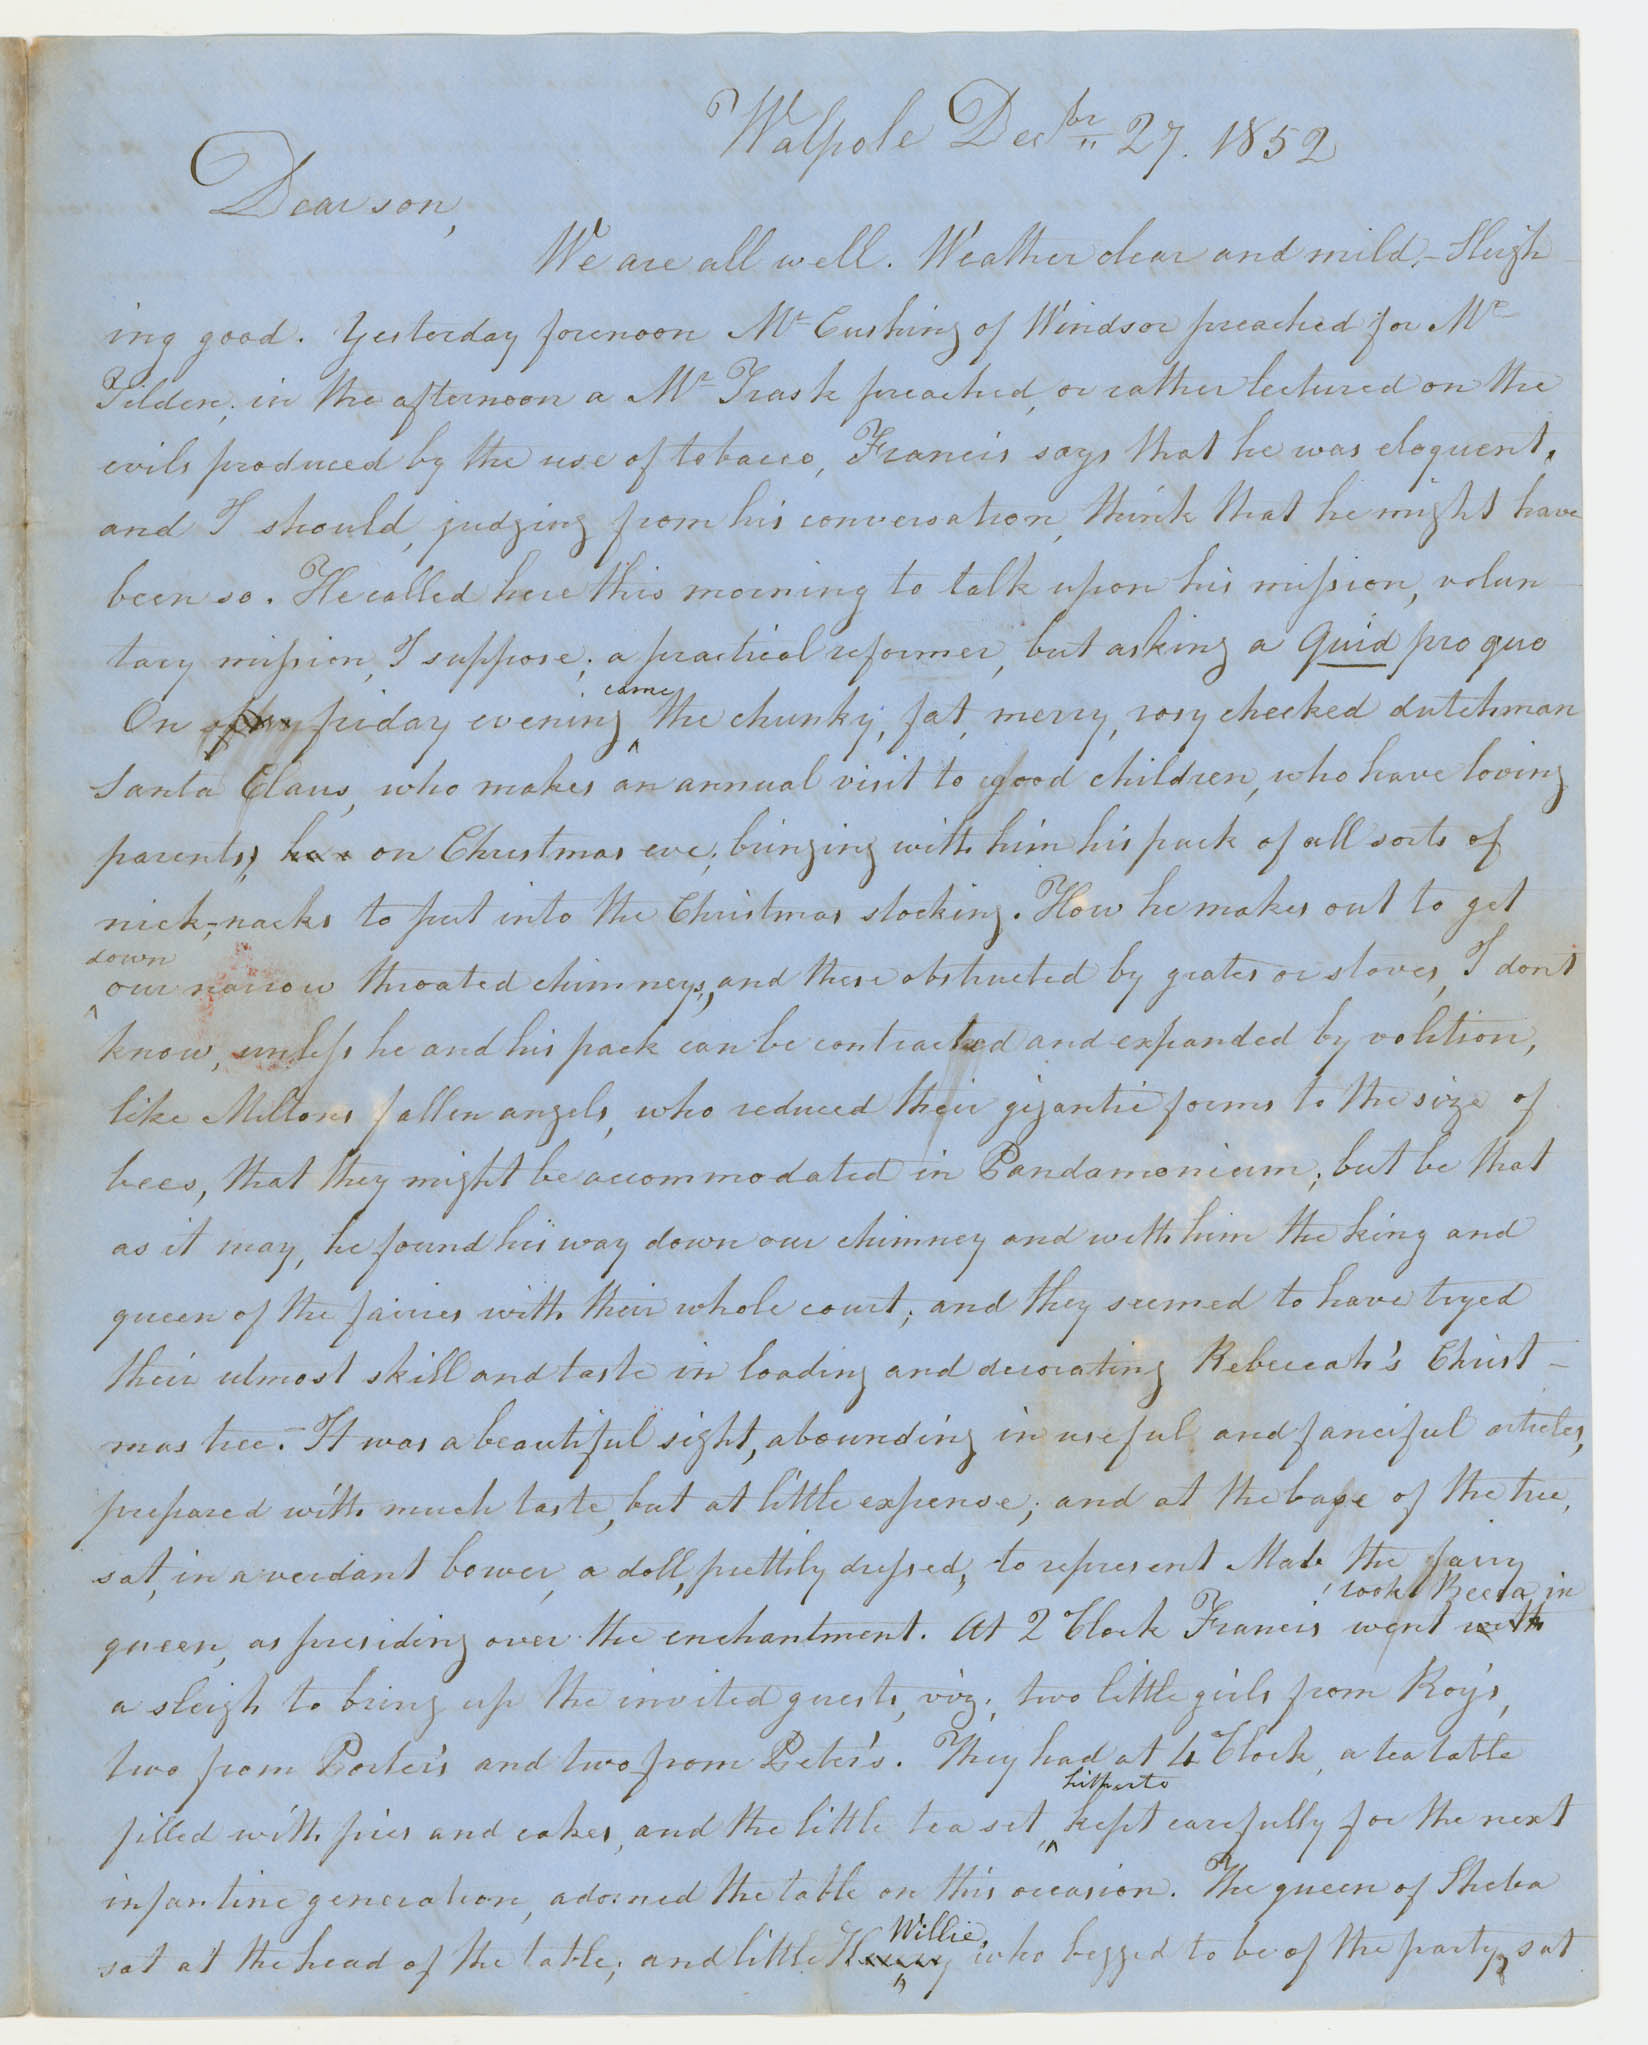 Walpole Decbr 27. 1852
Dear son,
We are all well. Weather clear and mild, - Sleigh
ing good. Yesterday forenoon Mr Cushing of Windsor preached for Mr
Tilden; in the afternoon a Mr Trask preached, or rather lectured on the
evils produced by the use of tobacco, Francis says that he was eloquent,
and I should, judging from his conversation, think that he might have
been so. He called here this morning to talk upon his mission, volun
tary mission, I suppose; a practical reformer, but asking a quid pro quo
On friday evening came the chunky, fat, merry, rosy cheeked dutchman
Santa Claus, who makes an annual visit to good children, who have loving
parents, on Christmas eve; bringing with him his pack of all sorts of
nick-nacks to put into the Christmas stocking. How he makes out to get
down our narrow throated chimneys, and these obstructed by grates or stoves, I dont
know, unless he and his pack can be contracted and expanded by volition,
like Miltons fallen angels, who reduced their gigantic forms to the size of
bees, that they might be accommodated in Pandamonium; but be that
as it may, he found his way down our chimney and with him the king and
queen of the fairies with their whole court; and they seemed to have tryed
their utmost skill and taste in loading and decorating Rebeccah's Christ-
mas tree. It was a beautiful sight, abounding in useful and fanciful articles,
prepared with much taste, but at little expense; and at the base of the tree,
sat, in a verdant bower, a doll, prettily dressed, to represent Mab, the fairy
queen, as presiding over the enchantment. At 2 Clock Francis went took Becca in
a sleigh to bring up the invited guests, viz; two little girls from Roy's,
two from Porter's and two from Peter's. They had at 4 Clock, a tea table
filled with pies and cakes, and the little tea set, hitherto kept carefully for the next
infantine generation, adorned the table on this occasion. The queen of Sheba
sat at the head of the table; and little Willie, who begged to be of the party, sat